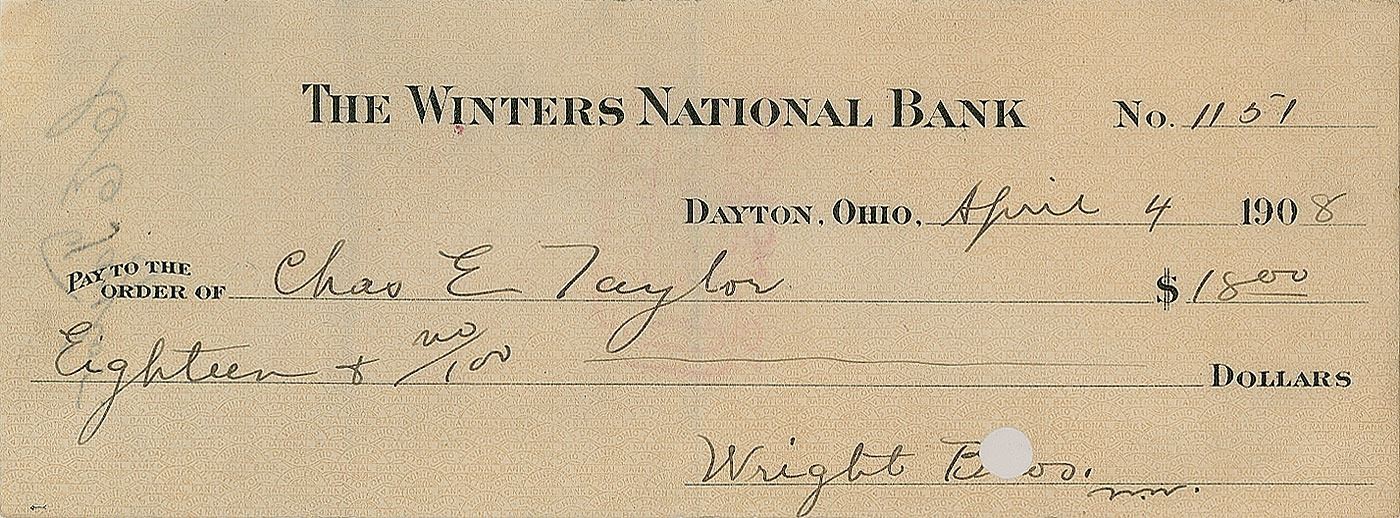 THE WINTERS NATIONAL BANK No. 1151
DAYTON, OHIO, April 4 1908
PAY TO THE ORDER OF Chas E Taylor $ 18 00
Eighteen & no/100 DOLLARS
Wright Bros.